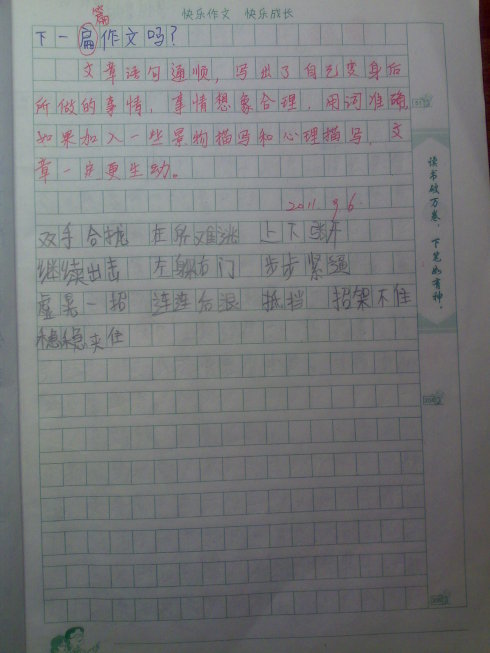 快乐作文 快乐成长
篇
下一扁作文吗？
文章语句通顺，写出了自己变身后
所做的事情，事情想象合理，用词准确，
如果加入一些景物描写和心理描写，文
章一定更生动。
2011 9 6
双手合拢 在所难逃 上下张开
继续出击 左躲右闪 步步紧逼
虚晃一招 连连后退 抵挡 招架不住
稳稳夹住
读书破万卷，下笔如有神。